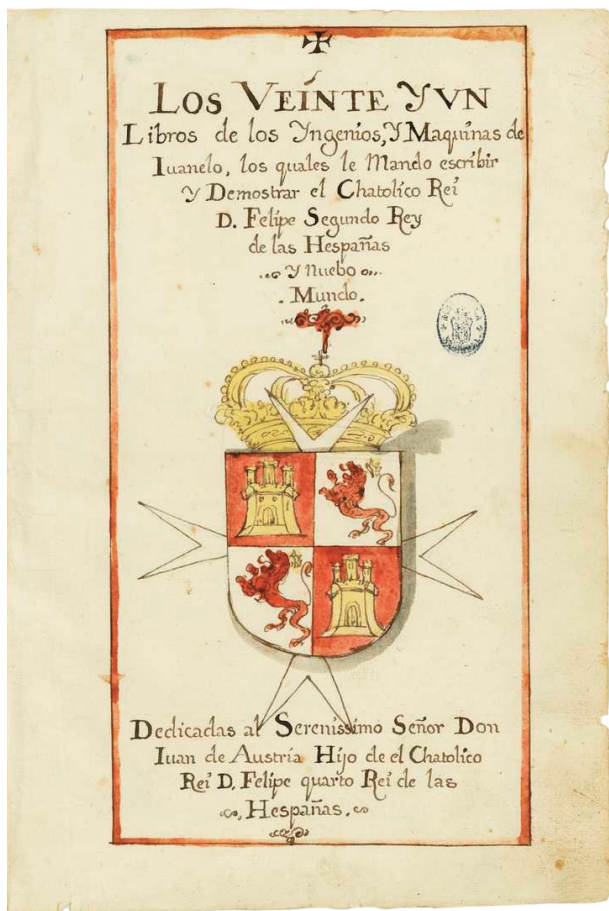 LOS VEÍNTE Y VN
Libros de los Yngenios, Y Maquínas de
Iuanelo, los quales le Mando escribir
Y Demostrar el Chatolico Reí
D. Felipe Segundo Rey
de las Hespañas
Y Nuebo
. Mundo.
Dedicadas al Serenissimo Señor Don
Iuan de Austria Hijo de el Chatolico
Reí D. Felipe quarto Reí de las
Hespañas.